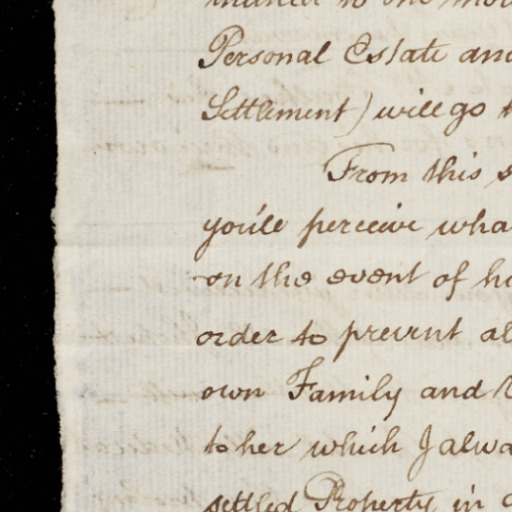 Personal Estate and
Settlement) will go
From this
you'le perceive wha
on the event of h
order to prevent al
own Family and
to her which I alwa
settled Property in